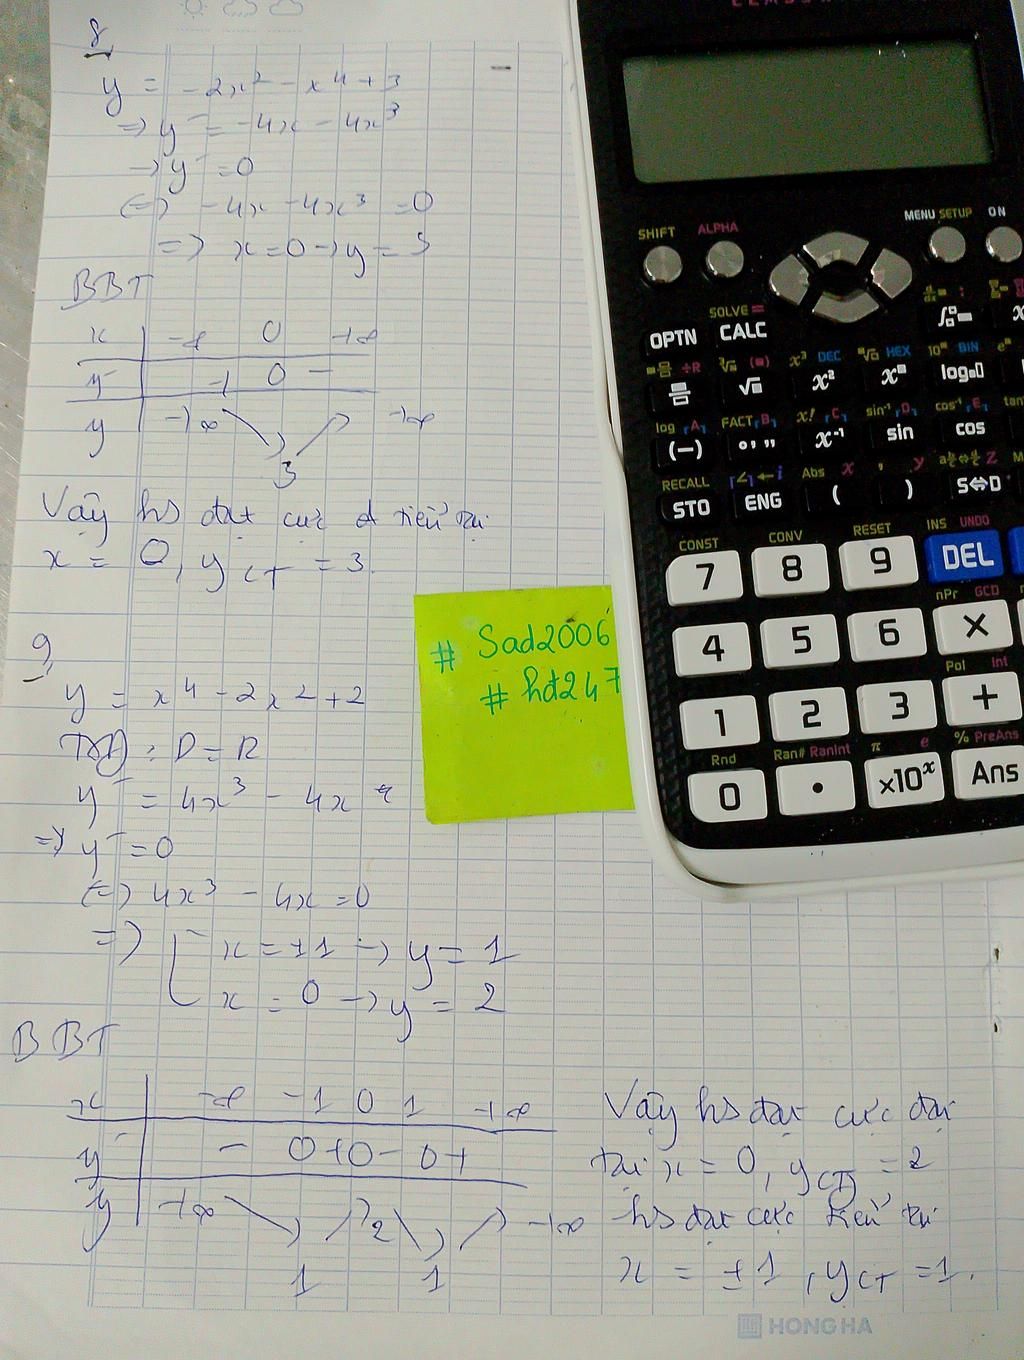 8
y = -2x² - x⁴ + 3
=> y' = -4x - 4x³
-> y' = 0
<=> -4x - 4x³ = 0
=> x = 0 -> y = 3
BBT
x | -∞ 0 +∞
y' | + 0 -
y | +∞ ↘ 3 ↗ +∞
Vậy hs đạt cực tiểu tại
x = 0, yCT = 3.
9
y = x⁴ - 2x² + 2
TXĐ : D = R
y' = 4x³ - 4x
=> y' = 0
<=> 4x³ - 4x = 0
=> [ x = ±1 -> y = 1
x = 0 -> y = 2
BBT
x | -∞ -1 0 1 +∞
y' | - 0 + 0 - 0 +
y | +∞ ↘ 1 ↗ 2 ↘ 1 ↗ +∞
Vậy hs đạt cực đại
tại x = 0, yCĐ = 2
hs đạt cực tiểu tại
x = ±1, yCT = 1.
# Sad2006
# hđ247
HONG HA
MENU SETUP ON
SHIFT ALPHA
SOLVE =
OPTN CALC
÷R ³√ x³ DEC HEX 10 BIN e
√ x² x log
log A FACT B x! C sin⁻¹ D cos⁻¹ E tan
(−) °'" x⁻¹ sin cos
RECALL ∠ ← i Abs x , y Z
STO ENG ( ) S⇔D M
CONST CONV RESET INS UNDO
7 8 9 DEL
nPr GCD
4 5 6 ×
Pol Int
1 2 3 +
Rnd Ran# RanInt π e % PreAns
0 . ×10ˣ Ans